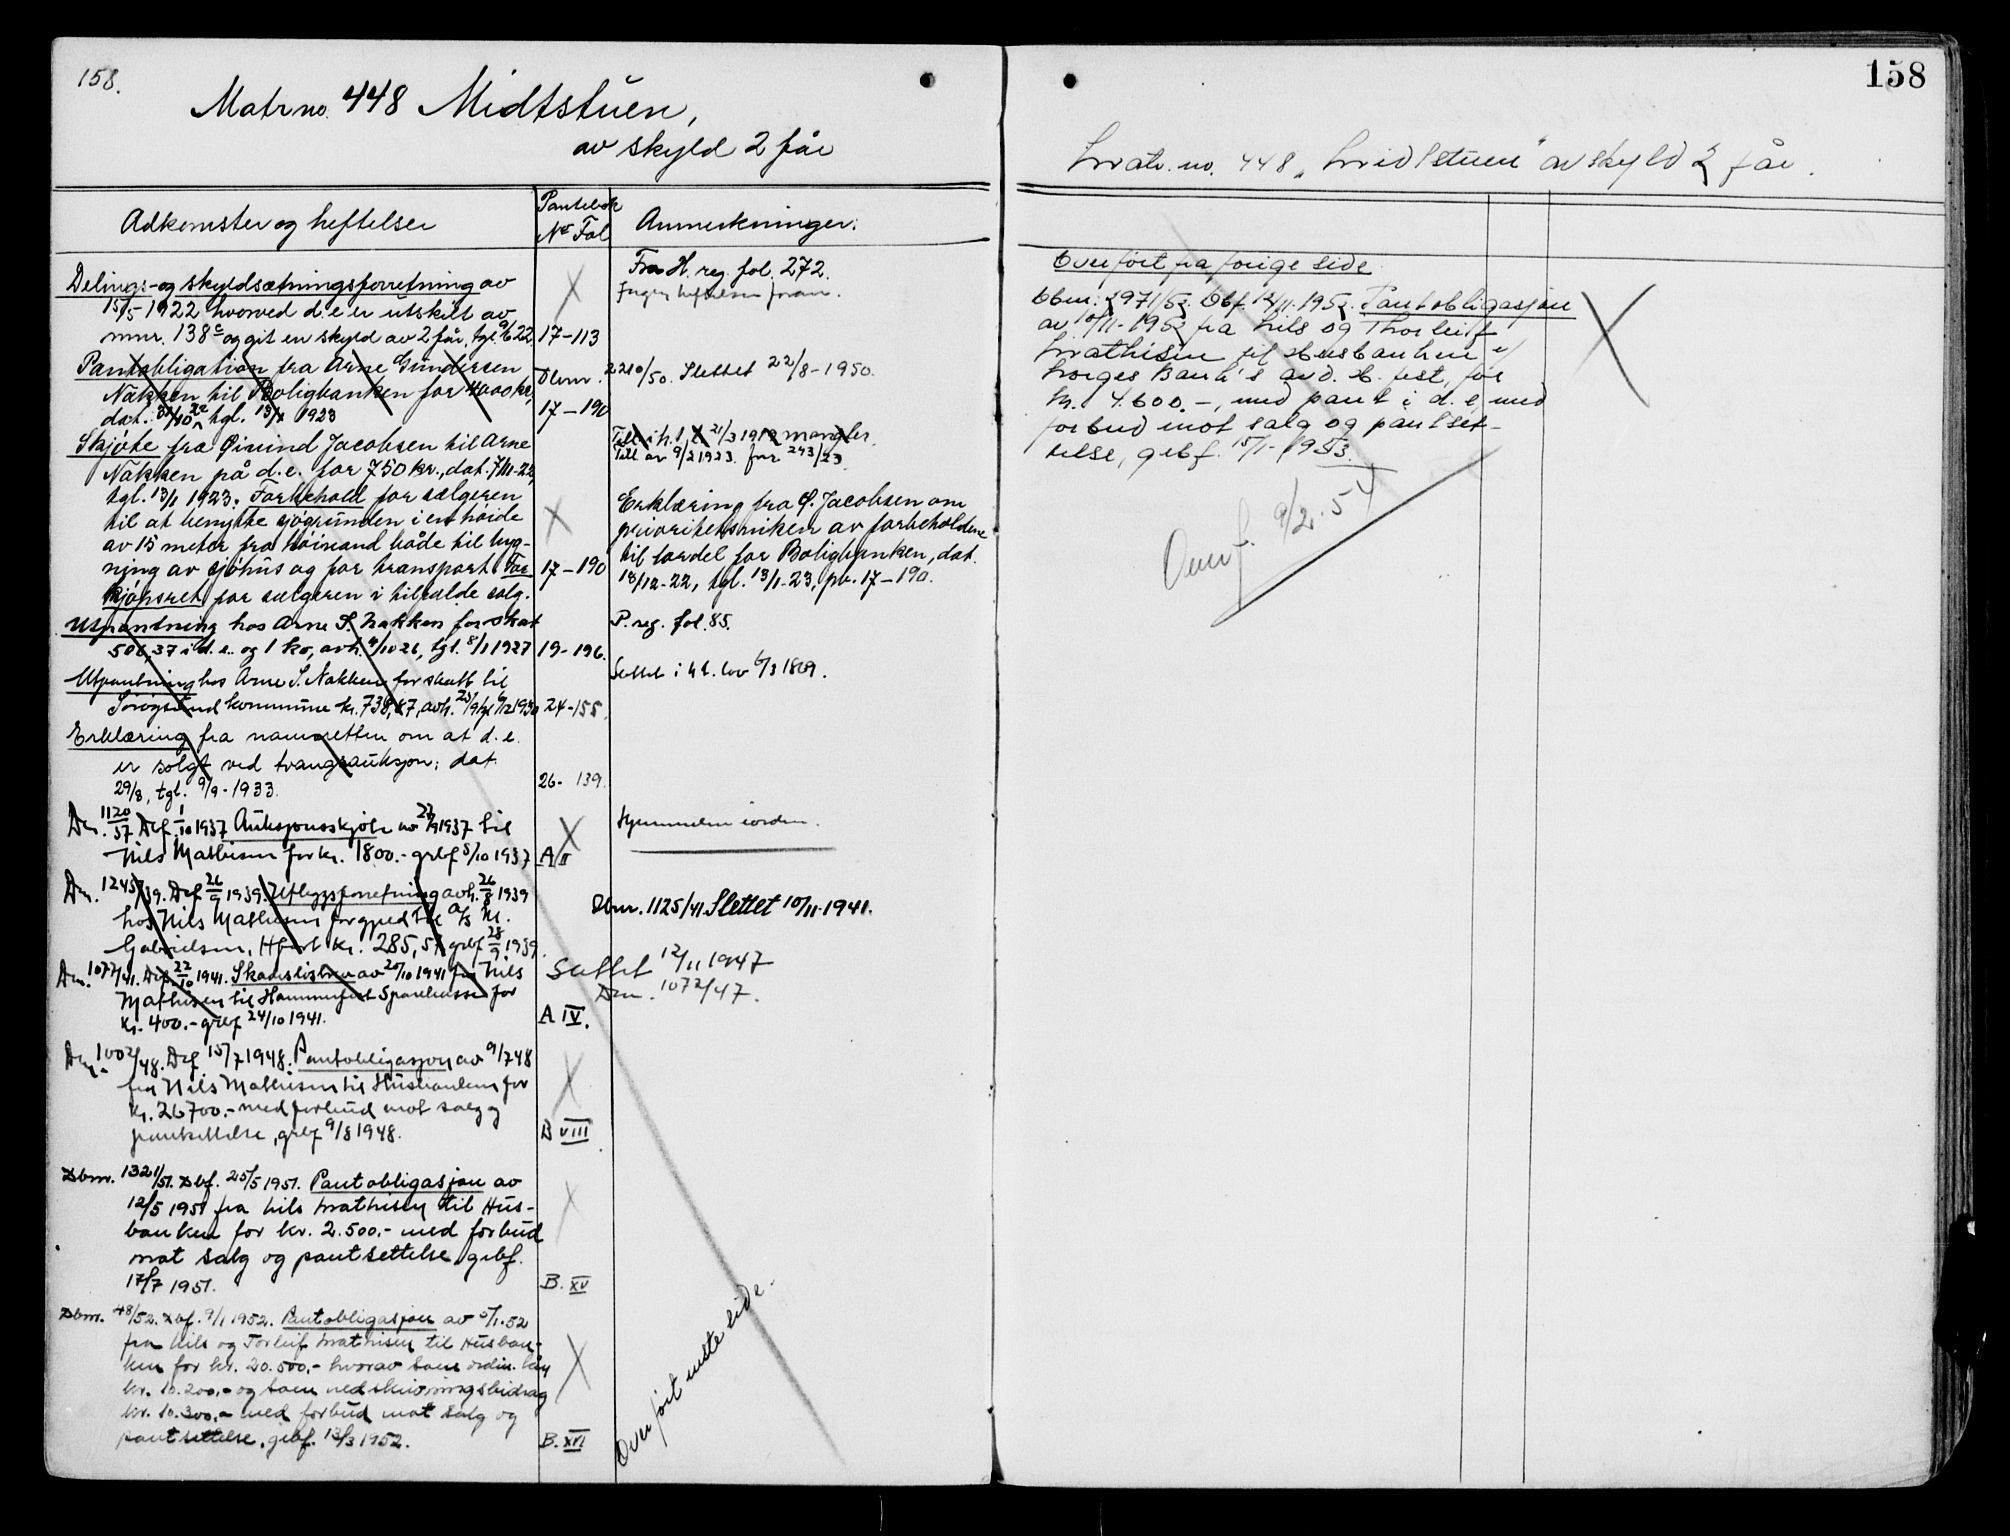 158.
Matr no. 448 Midtstuen,
av skyld 2 får
Adkomster og heftelser
Pantebok
Nr Fol
Anmerkninger:
Delings- og skyldsætningsforretning av
15/5-1922 hvorved d.e. er utskilt av
mnr. 138c og git en skyld av 2 får, tgl. 9/6 22
17-113
Fra H. reg. fol. 272.
Ingen heftelser foran.
Pantobligation fra Arne Gundersen
Nakken til Boligbanken for 4000 kr,
dat. 30/10 22 tgl. 13/1 1923
17-190
Dbnr. 2210/50. Slettet 22/8-1950.
Skjøte fra Øivind Jacobsen til Arne
Nakken på d.e. for 750 kr., dat. 7/11-22,
tgl. 13/1 1923. Forbehold for sælgeren
til at benytte sjøgrunden i en høide
av 15 meter fra høivand både til byg-
ning av sjøhus og for transport. For-
kjøpsret for sælgeren i tilfælde salg.
17-190
Till. i h. t. l. 21/3 1912 mangler.
Till av 9/2 1923. fnr 243/23
Erklæring fra Ø. Jacobsen om
prioritetsviken av forbeholdene
til fordel for Boligbanken, dat.
18/12-22, tgl. 13/1-23, pb. 17-190.
Utpantning hos Arne S. Nakken for skat
506,37 i d.e. og 1 ko, avh. 4/10 26, tgl. 8/1 1927
19-196.
P. reg. fol. 85.
Utpantning hos Arne S. Nakken for skatt til
Sørøysund kommune kr. 738,87, avh. 25/9 tgl 6/12 1930
24-155
Slettet i h t. lov 6/3 1869.
Erklæring fra namsretten om at d.e.
er solgt ved tvangsauksjon; dat.
29/8, tgl. 9/9-1933.
26-139.
Dnr. 1120/37 Dbf 1/10 1937 Auksjonsskjøte av 22/9 1937 til
Nils Mathisen for kr. 1800.- grbf 5/10 1937
A II
Hjemmelen iorden.
Dnr. 1245/39. Dbf 26/9 1939. Utleggsforretning avh. 26/8 1939
hos Nils Mathisen for gjeld til A/S M.
Gabrielsen, Hfest kr. 285,57 grbf 28/9 1939.
Dbnr. 1125/41 Slettet 10/11-1941.
Dnr. 1072/41. Dbf 22/10 1941. Skadesløsbrev av 20/10 1941 fra Nils
Mathisen til Hammerfest Sparekasse for
kr. 400.- grbf 24/10 1941.
A IV.
Slettet 12/11 1947
Dnr. 1072/47.
Dnr. 1002/48. Dbf 15/7 1948. Pantobligasjon av 9/7 48
fra Nils Mathisen til Husbanken for
kr. 26700.- med forbud mot salg og
pantsettelse, grbf 9/8 1948.
B VIII
Dbnr. 1321/51. Dbf. 25/5 1951. Pantobligasjon av
12/5 1951 fra Nils Mathisen til Hus-
banken for kr. 2.500.- med forbud
mot salg og pantsettelse grbf.
17/7 1951.
B. XV
Dbnr. 48/52. Dbf. 9/1 1952. Pantobligasjon av 5/1.52
fra Nils og Torleif Mathisen til Husban-
ken for kr. 20.500.- hvorav som ordin. lån
kr. 10.200.- og som nedskrivningsbidrag
kr. 10.300.- med forbud mot salg og
pantsettelse, grbf. 13/3 1952.
B. XVI
Overført neste side.
158
Matr. no. 448 "Midtstuen" av skyld 2 får.
Overført fra forige side
Dbnr. 2971/52. Dbf. 12/11.1952. Pantobligasjon
av 10/11-1952 fra Nils og Thorleif
Mathisen til Husbanken v/
Norges Bank's avd. H. fest, for
kr. 4.600.-, med pant i d.e, med
forbud mot salg og pantset-
telse, grbf. 15/1-1953.
Overf. 9/2.54